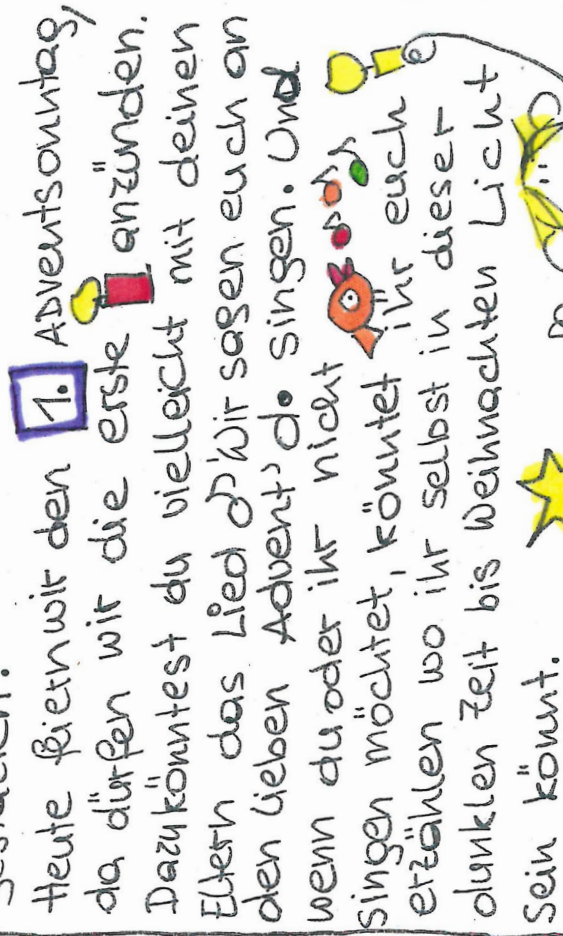 Heute feiern wir den 1. Adventsonntag,
da dürfen wir die erste anzünden.
Dazu könntest du vielleicht mit deinen
Eltern das Lied "Wir sagen euch an
den lieben Advent" singen. Und
wenn du oder ihr nicht
singen möchtet, könntet ihr euch
erzählen wo ihr selbst in dieser
dunklen Zeit bis Weihnachten Licht
sein könnt.